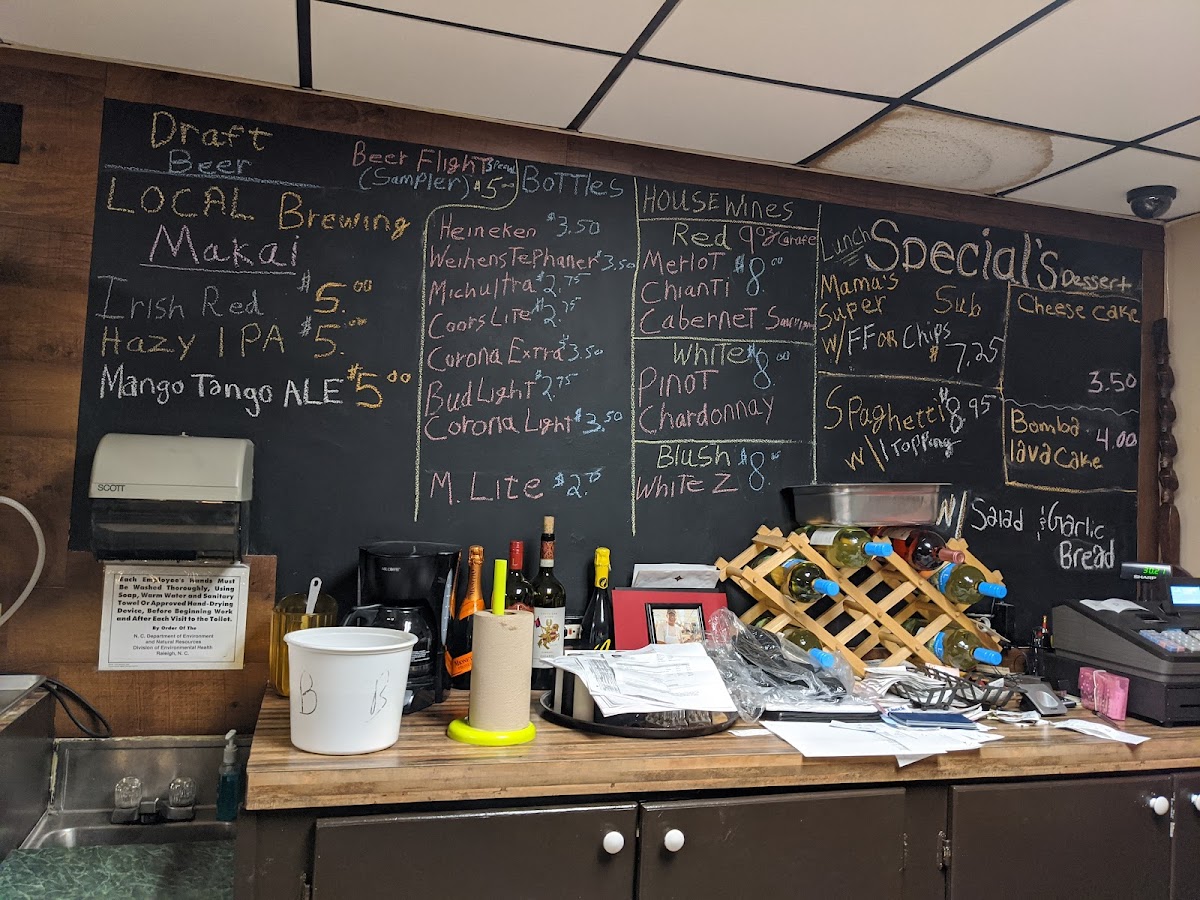 Draft
Beer
LOCAL Brewing
Makai
Irish Red $5.00
Hazy IPA $5.00
Mango Tango ALE $5.00
Beer Flight Special
(Sampler) $5.00
Bottles
Heineken $3.50
WeihensTePhaner $3.50
Michultra $2.75
Coors Lite $2.75
Corona Extra $3.50
Bud Light $2.75
Corona Light $3.50
M. Lite $2.75
HOUSE WINES
Red 9oz Carafe
Merlot $8.00
Chianti
Cabernet
White $8.00
Pinot
Chardonnay
Blush $8.00
White Z
Lunch Special's
Mama's
Super Sub
w/FF or Chips
$7.25
Spaghetti $8.95
w/1 Topping
w/ Salad & Garlic
Bread
Dessert
Cheese cake
3.50
Bomba 4.00
lava cake
SCOTT
Each Employee's Hands Must
Be Washed Thoroughly, Using
Soap, Warm Water and Sanitary
Towel Or Approved Hand-Drying
Device, Before Beginning Work
and After Each Visit to the Toilet.
By Order Of The
N. C. Department of Environment
and Natural Resources
Division of Environmental Health
Raleigh, N. C.
B B
SHARP